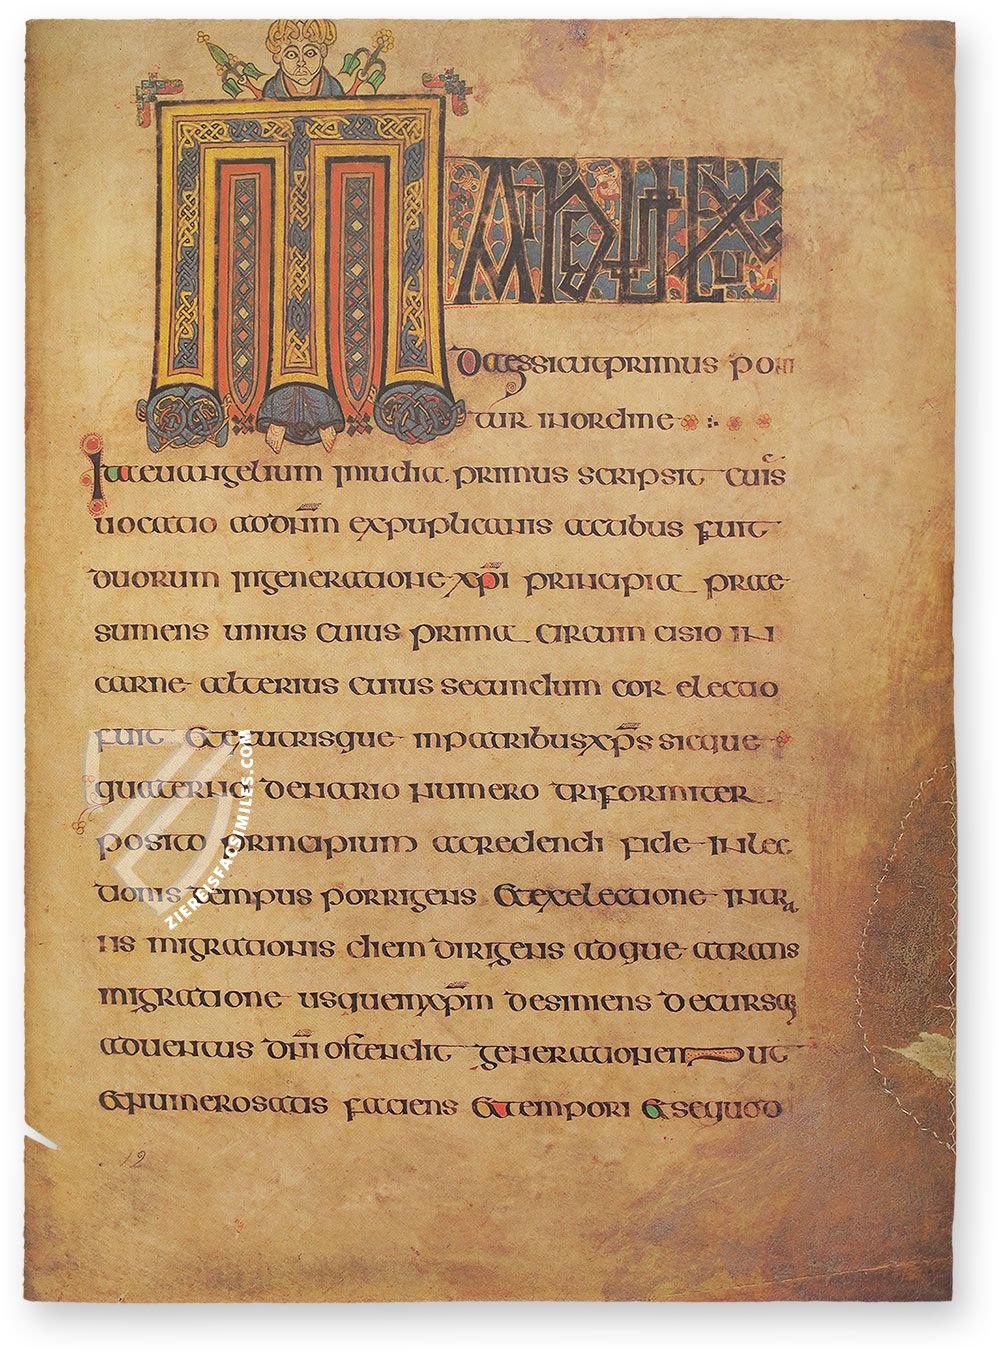 MATHEUS EX
IUDAEA SICUT PRIMUS PONI
TUR INORDINE
Ita euangelium iniudia primus scripsit cuis
uocatio addn̄m expuplicanis actibus fuit
duorum ingeneratione xp̄i principia prae
sumens unius cuius prima circum cisio in
carne alterius cuius secundum cor electio
fuit et exutrisque inpatribus xp̄s sicque
quaterno denario numero triformiter
posito principium acredendi fide inlec
tionis tempus porrigens et exelectione inura
nis migrationis diem dirigens adque atrans
migratione usquem xp̄m desiniens decursā
aduentus dn̄i ostendit generationem ut
et numerosatis faciens et tempori et sequod
12
ZIEREISFACSIMILES.COM